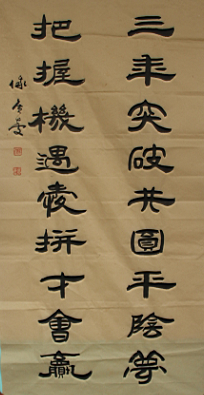 三年突破共圓平陰夢
把握機遇愛拼才會贏